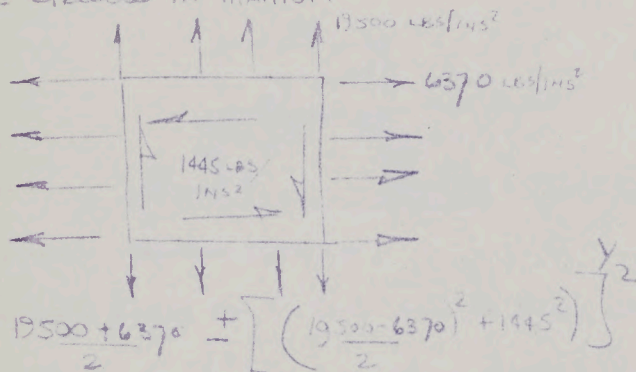 19500 LBS/INS²
6370 LBS/INS²
1445 LBS/
INS²
19500 + 6370 / 2 ± [ ( 19500 - 6370 / 2 )² + 1445² ) ] ½